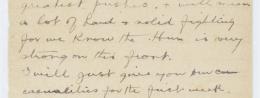 greatest pushes, & will mean
a lot of hard & solid fighting
for we know the Hun is very
strong on this front.
I will just give you our
casualities for the first week.